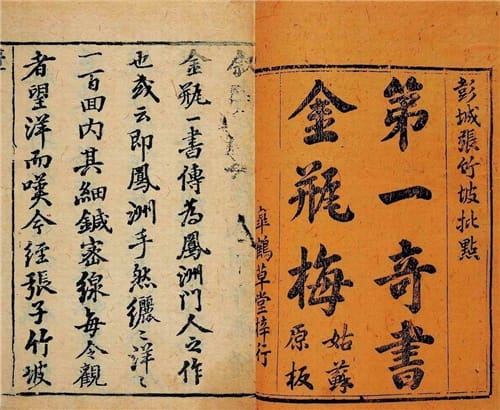 彭城張竹坡批點
第一奇書
金瓶梅
姑蘇
原板
臯鶴草堂梓行
金瓶一書傳為鳳洲門人之作
也或云即鳳洲手然纚〻洋〻
一百囬內其細鍼密線每令觀
者望洋而嘆今經張子竹坡